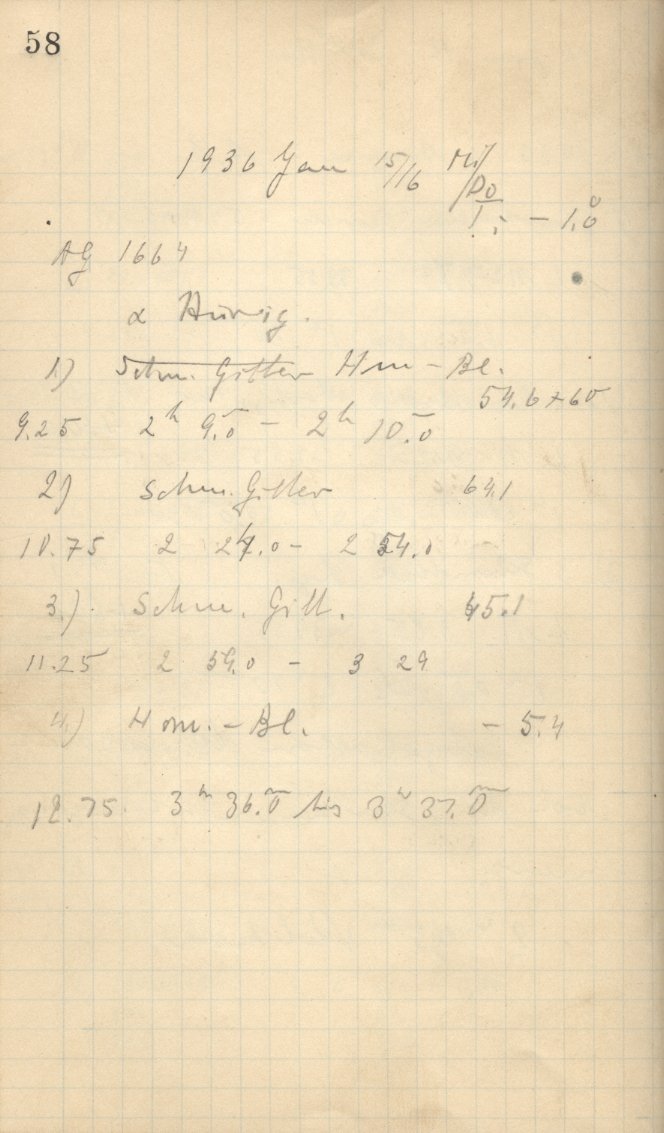 58
1936 Jan 15/16 Mi/Do
T: - 1.0°
AG 1664
α Aurig.
1) Schm. Gitter Hm - Bl.
54.6 + 60
9.25 2h 9.m0 - 2h 10.m0
2) Schm. Gitter 64.1
10.75 2 24.0 - 2 54.0
3.) Schm. Gitt. 45.1
11.25 2 59.0 - 3 29
4) Hom. - Bl. - 5.4
12.75 3h 36.m0 bis 3h 37.m0